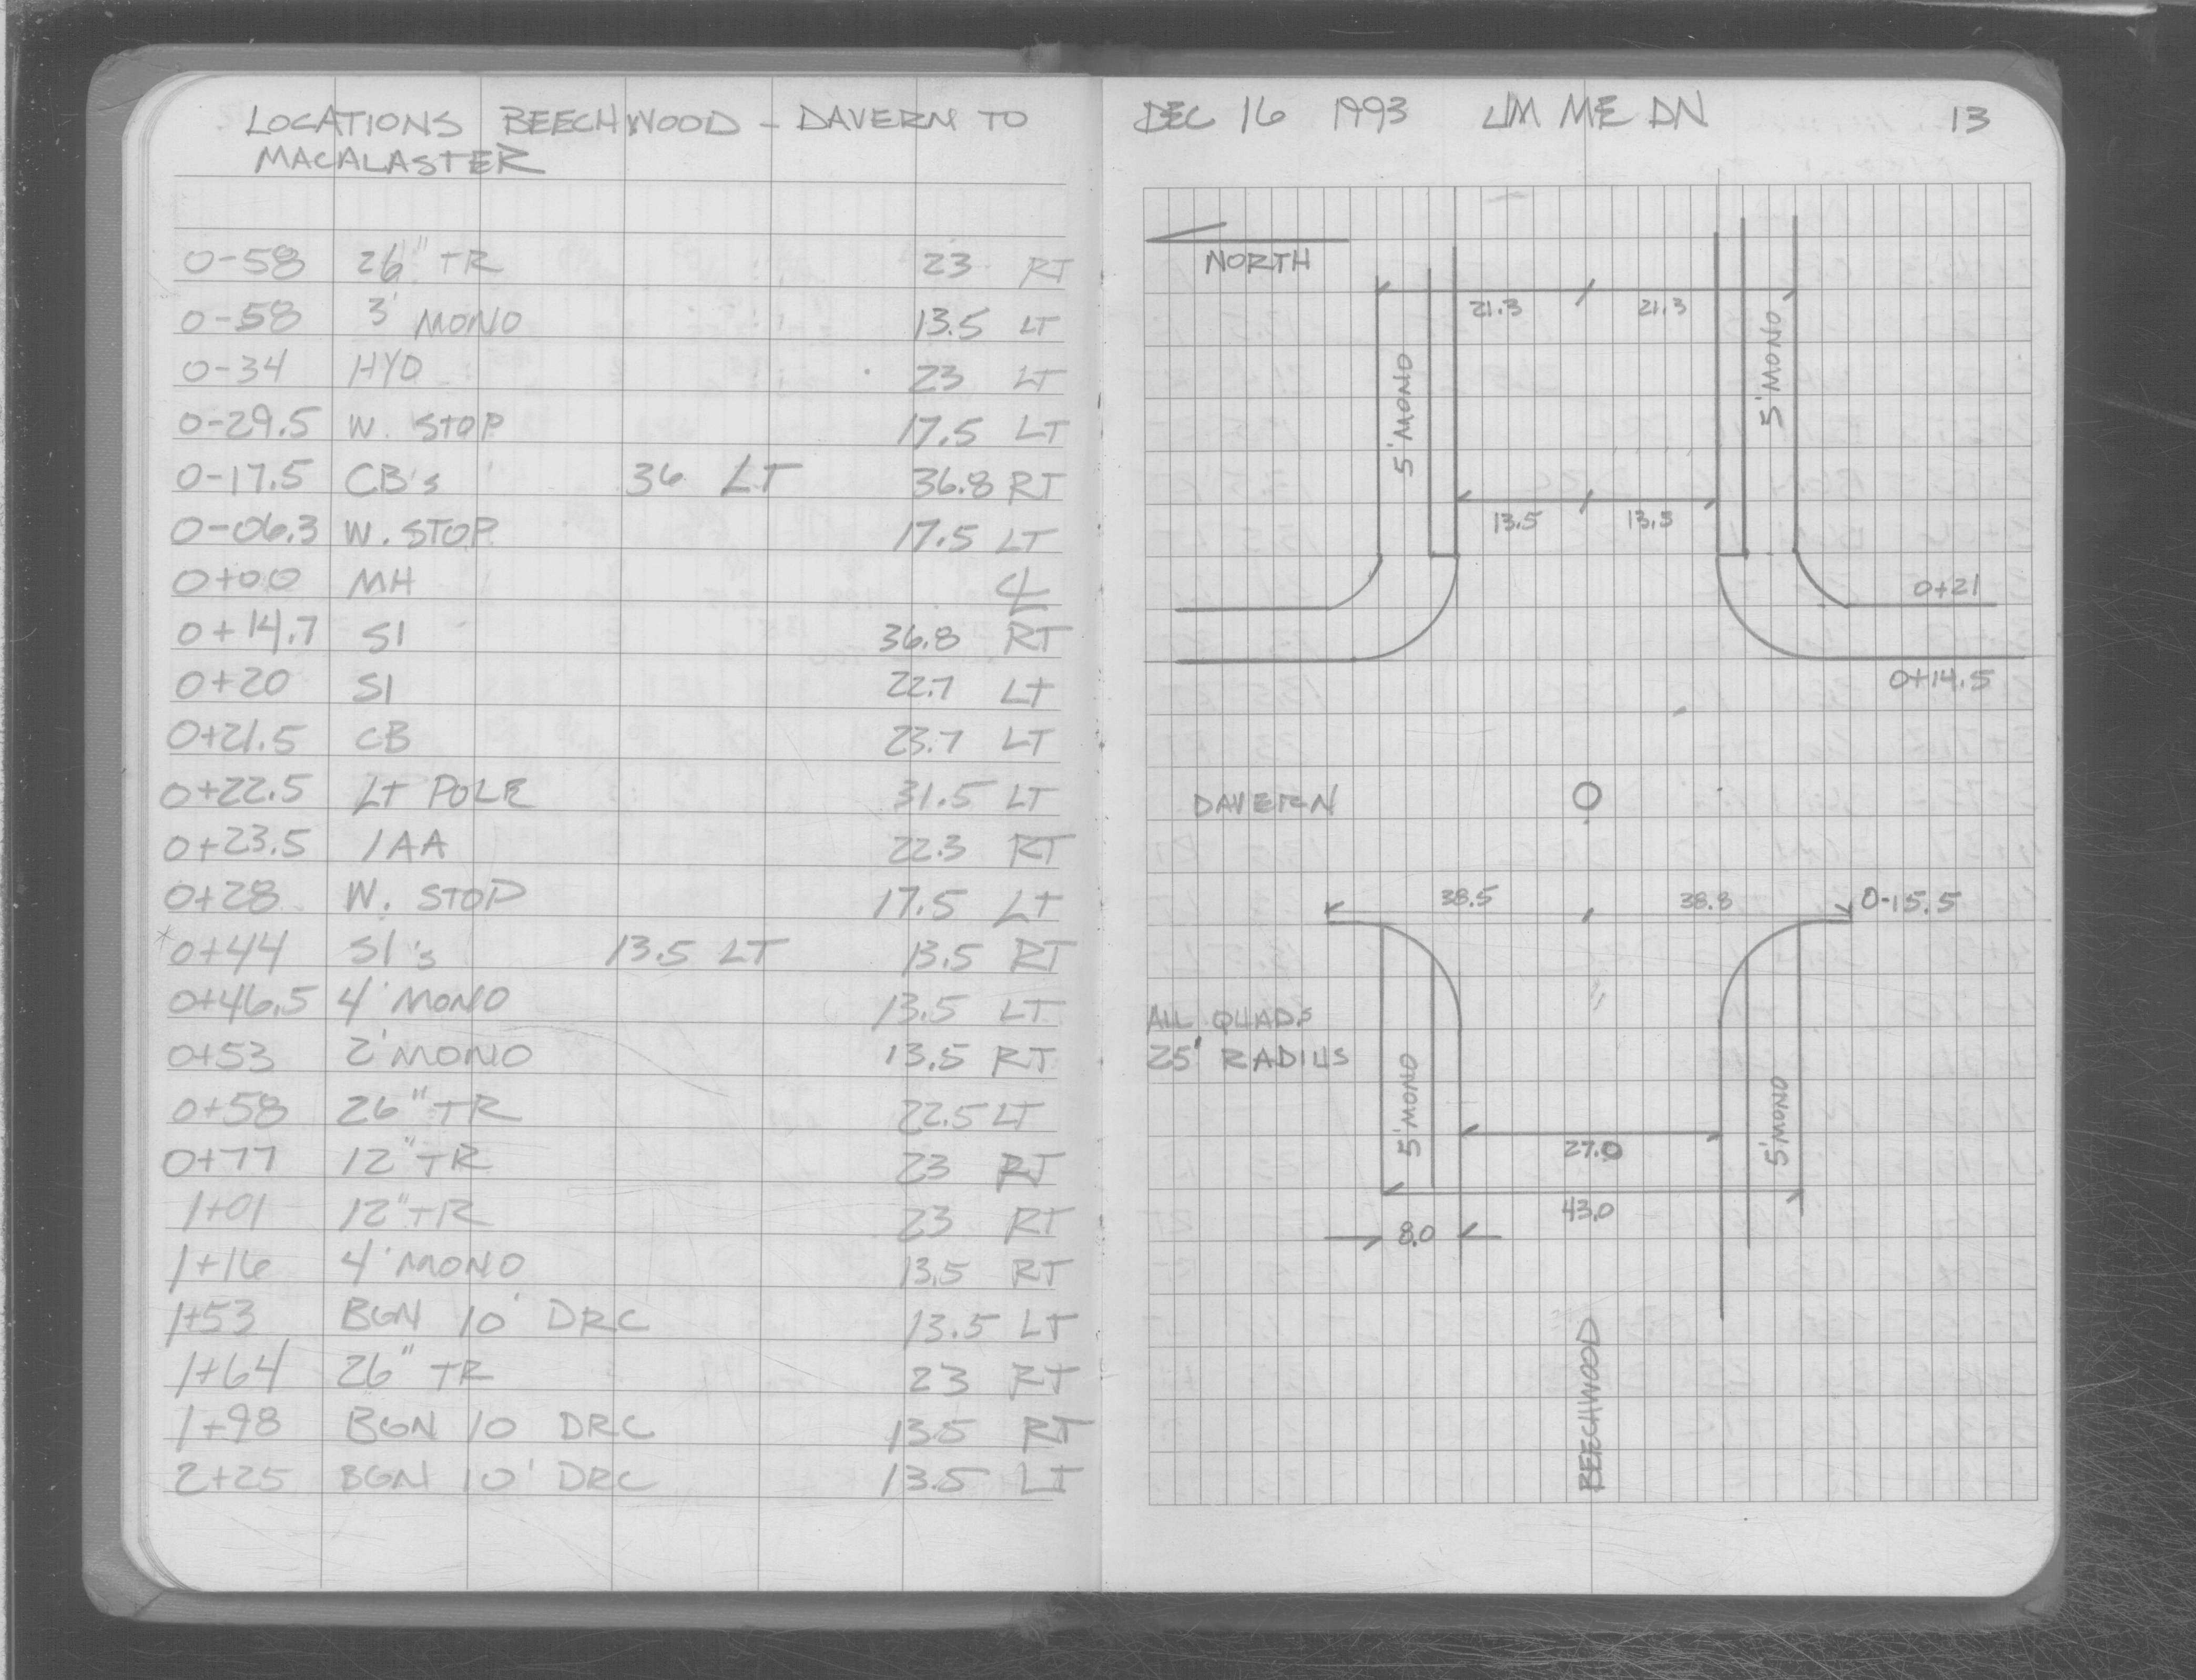 LOCATIONS BEECHWOOD - DAVERN TO
MACALASTER
0-58 26" TR 23 RT
0-58 3' MONO 13.5 LT
0-34 HYD 23 LT
0-29.5 W. STOP 17.5 LT
0-17.5 CB's 36 LT 36.8 RT
0-06.3 W. STOP 17.5 LT
0+00 MH CL
0+14.7 SI 36.8 RT
0+20 SI 22.7 LT
0+21.5 CB 23.7 LT
0+22.5 LT POLE 31.5 LT
0+23.5 1AA 22.3 RT
0+28 W. STOP 17.5 LT
*0+44 SI's 13.5 LT 13.5 RT
0+46.5 4' MONO 13.5 LT
0+53 2' MONO 13.5 RT
0+58 26" TR 22.5 LT
0+77 12" TR 23 RT
1+01 12" TR 23 RT
1+16 4' MONO 13.5 RT
1+53 BGN 10' DRC 13.5 LT
1+64 26" TR 23 RT
1+98 BGN 10 DRC 13.5 RT
2+25 BGN 10' DRC 13.5 LT
DEC 16 1993 JM ME DN 13
NORTH
21.3 21.3
5' MONO
5' MONO
13.5 13.5
0+21
0+14.5
DAVERN
38.5 38.8 0-15.5
ALL QUADS
25' RADIUS
5' MONO
5' MONO
27.0
43.0
8.0
BEECHWOOD